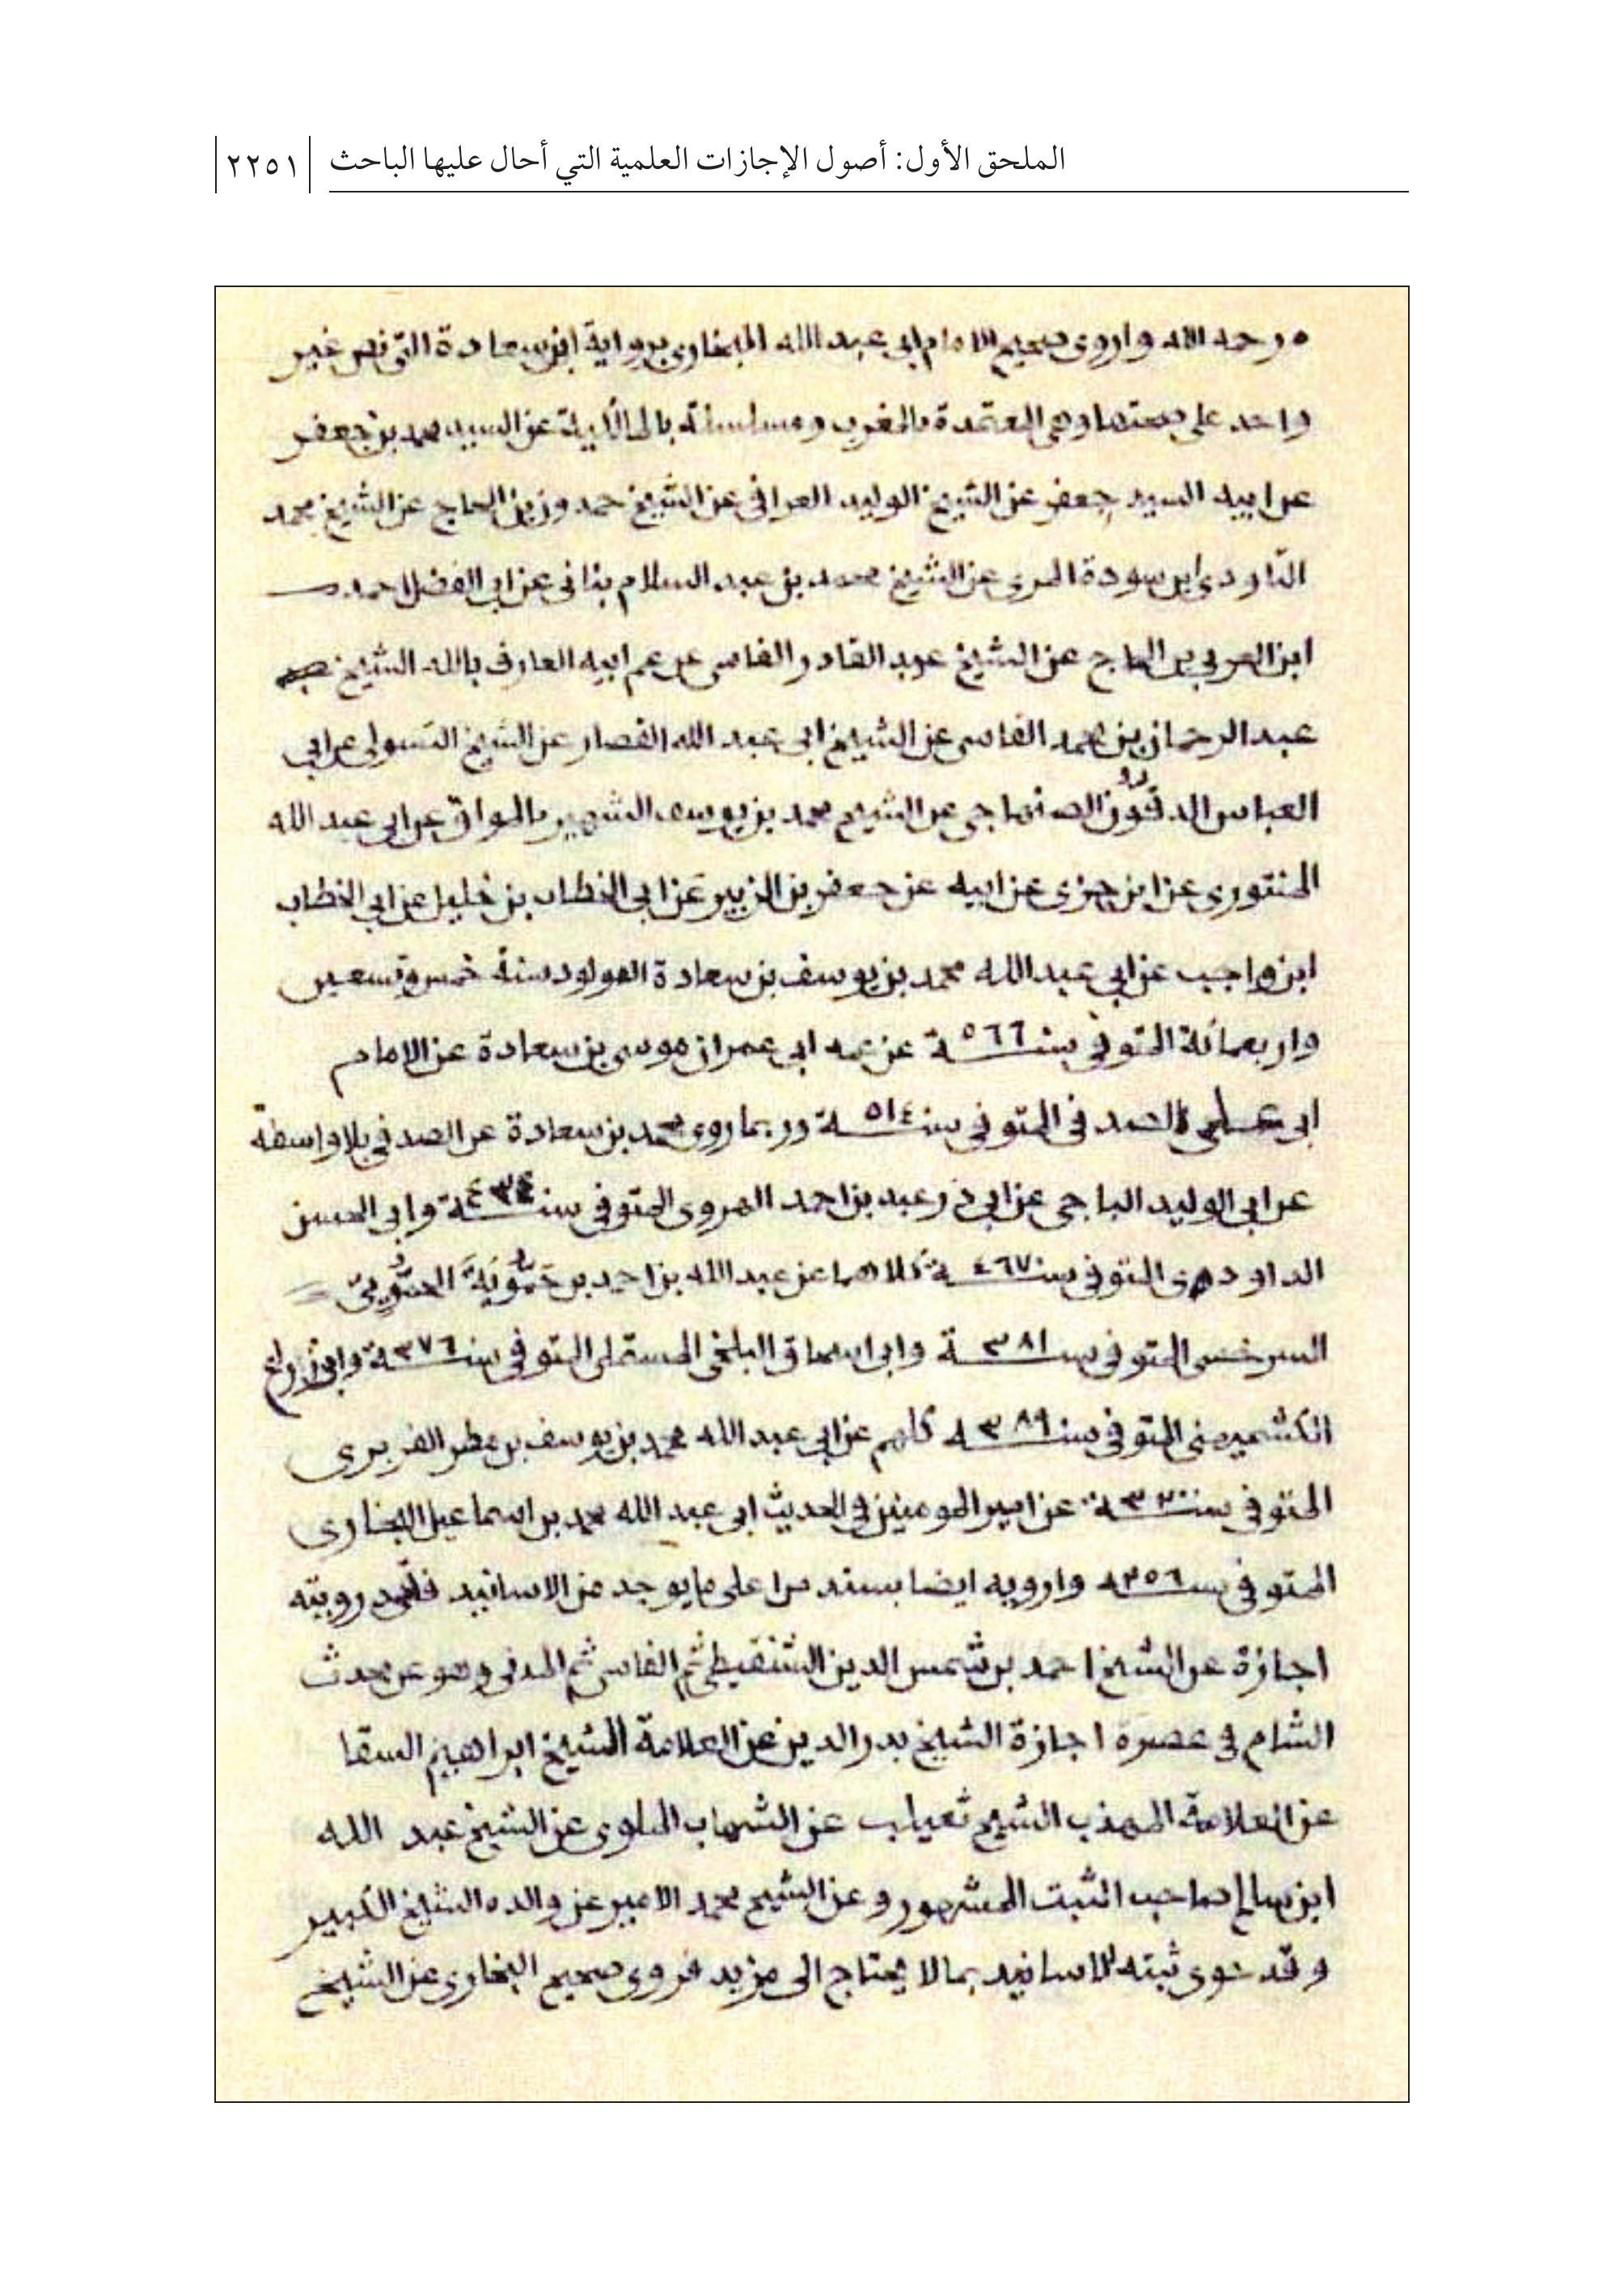 الملحق الأول: أصول الإجازات العلمية التي أحال عليها الباحث
٢٢٥١
رحمه الله واروى صحيح الامام ابى عبد الله البخارى برواية ابن سعادة التى نص غير
واحد على صحتها وهى المعتمدة بالمغرب ومسلسلة بالمالكية عن السيد محمد بن جعفر
عن ابيه السيد جعفر عن الشيخ الوليد العراقى عن الشيخ حمدون بن الحاج عن الشيخ محمد
التاودى ابن سودة المرى عن الشيخ محمد بن عبد السلام بنانى عن ابى الفضل احمد
ابن العربى بن الحاج عن الشيخ عبد القادر الفاسى عن عم ابيه العارف بالله الشيخ
عبد الرحمان بن محمد الفاسى عن الشيخ ابى عبد الله القصار عن الشيخ التسولى عن ابى
العباس الدقون الصنهاجى عن الشيخ محمد بن يوسف الشهير بالمواق عن ابى عبد الله
المنتورى عن ابن جزى عن ابيه عن جعفر بن الزبير عن ابى الخطاب بن خليل عن ابى الخطاب
ابن واجب عن ابى عبد الله محمد بن يوسف بن سعادة المولود سنة خمس وتسعين
واربعمائة المتوفى سنة ٥٦٦ عن عمه ابى عمران موسى بن سعادة عن الامام
ابى على الصدفى المتوفى سنة ٥١٤ وربما روى محمد بن سعادة عن الصدفى بلا واسطة
عن ابى الوليد الباجى عن ابى ذر عبد بن احمد الهروى المتوفى سنة ٤٣٤ وابى الحسن
الداودى المتوفى سنة ٤٦٧ كلاهما عن عبد الله بن احمد بن حَمُّويَة الحمُّويىّ
السرخسى المتوفى سنة ٣٨١ وابى اسحاق البلخى المستملى المتوفى سنة ٣٧٦ وابى
الكشميهنى المتوفى سنة ٣٨٩ كلهم عن ابى عبد الله محمد بن يوسف بن مطر الفربرى
المتوفى سنة ٣٢٠ عن امير المومنين فى الحديث ابى عبد الله محمد بن اسماعيل البخارى
المتوفى سنة ٢٥٦ وارويه ايضا بسند من اعلى ما يوجد من الاسانيد فلقد رويته
اجازة عن الشيخ احمد بن شمس الدين الشنقيطى ثم الفاسى ثم المدنى وهو عن محدث
الشام فى عصره اجازة الشيخ بدر الدين عن العلامة الشيخ ابراهيم السقا
عن العلامة المهذب الشيخ ثعيلب عن الشهاب الملوى عن الشيخ عبد الله
ابن سالم صاحب الثبت المشهور وعن الشيخ محمد الامير عن والده الشيخ الكبير
وقد حوى ثبته الاسانيد بما لا يحتاج الى مزيد فروى صحيح البخارى عن الشيخ